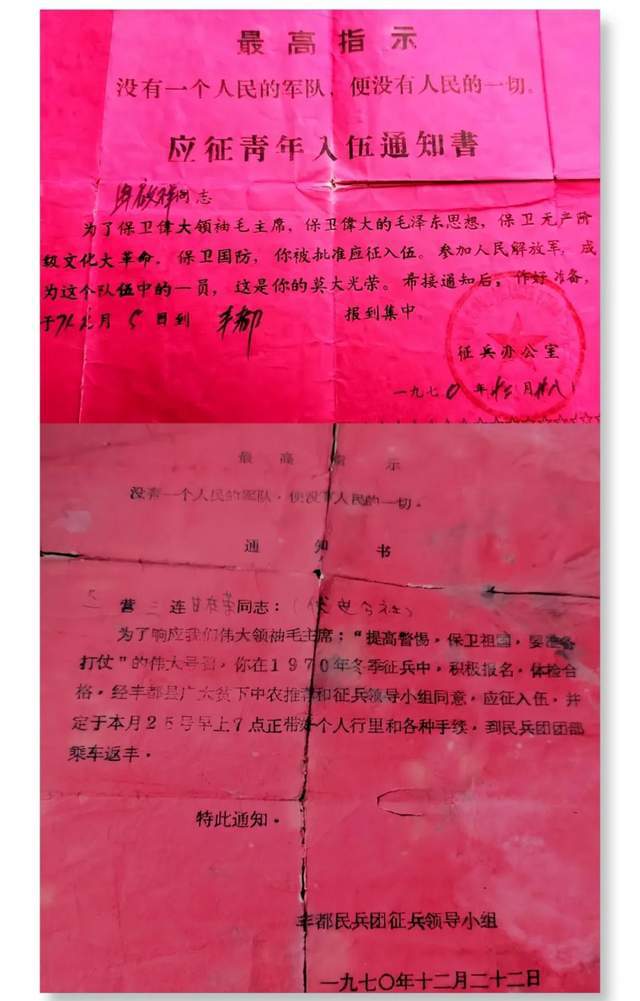 最高指示
没有一个人民的军队、便没有人民的一切。
应征青年入伍通知書
同志
为了保卫偉大领袖毛主席，保卫偉大的毛泽东思想，保卫无产阶
级文化大革命，保卫国防，你被批准应征入伍。参加人民解放军，成
为这个队伍中的一员，这是你的莫大光荣。希接通知后，作好准备，
于71年 月5日到 丰都 报到集中。
征兵办公室
一九七0年十二月
最高指示
没有一个人民的军队，便没有人民的一切。
通知书
营三连甘 同志：
为了响应我们伟大领袖毛主席：“提高警惕，保卫祖国，要准备
打仗”的伟大号召，你在1970年冬季征兵中，积极报名，体检合
格，经丰都县广大贫下中农推荐和征兵领导小组同意，应征入伍，并
定于本月25号早上7点正带好个人行里和各种手续，到民兵团团部
乘车返丰．
特此通知。
丰都民兵团征兵领导小组
一九七〇年十二月二十二日